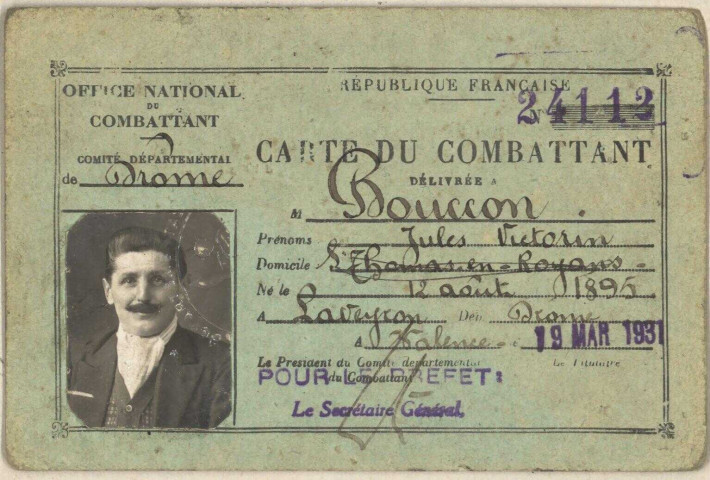 OFFICE NATIONAL
DU
COMBATTANT
COMITÉ DÉPARTEMENTAL
de Drome
RÉPUBLIQUE FRANÇAISE
N° 24112
CARTE DU COMBATTANT
DÉLIVRÉE A
M Bouccon.
Prénoms Jules Victorin
Domicile St Thomas-en-Royans
Né le 12 août 1895
A Laveyron Dép Drome
A Valence 19 MAR 1931
Le Président du Comité départemental Le Titulaire
du Combattant
POUR LE PREFET:
Le Secrétaire Général,